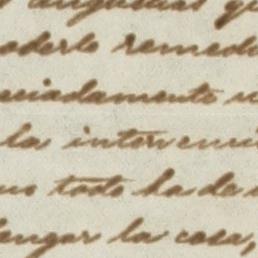 angustias qu
oderlo remedi
ciadamente
la intervenci
todo ha de
engar la cosa,